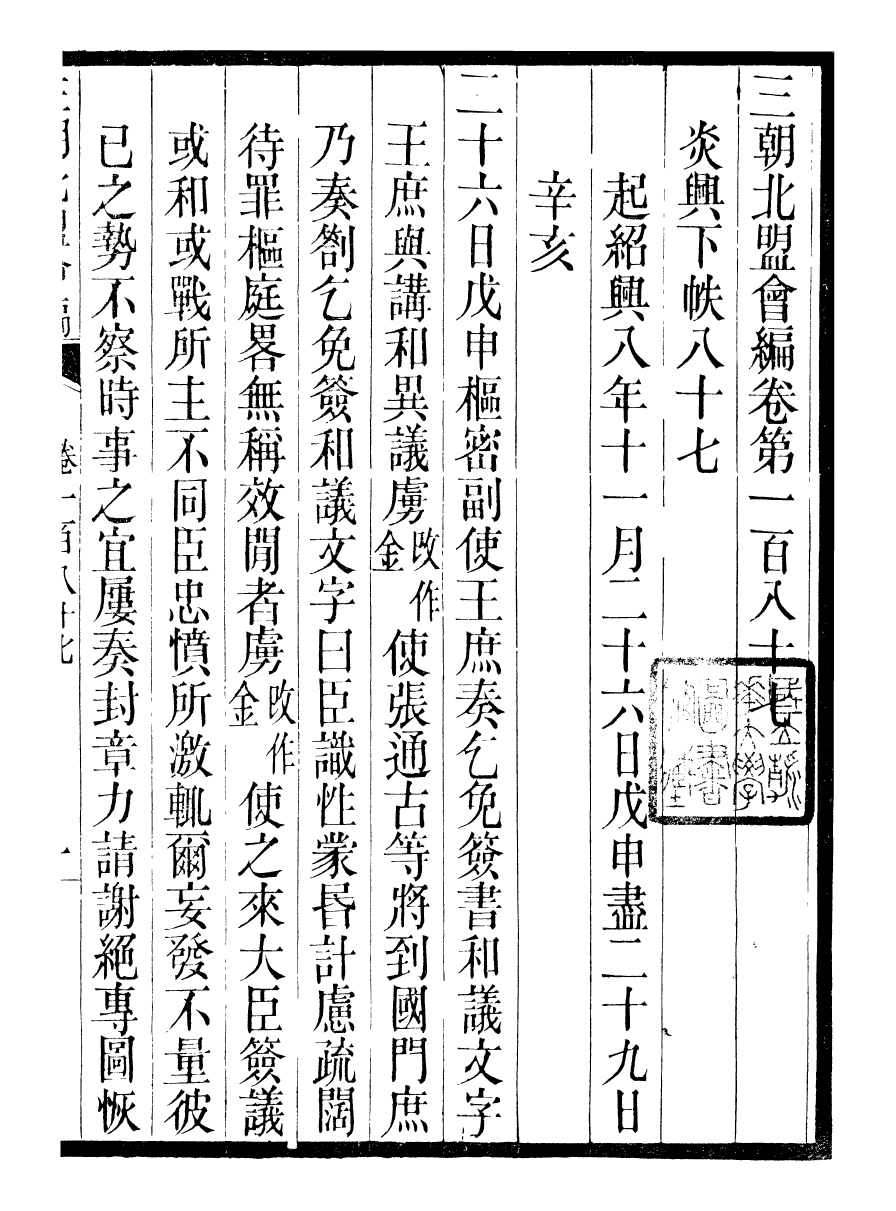 三朝北盟會編卷第一百八十七
炎興下帙八十七
起紹興八年十一月二十六日戊申盡二十九日
辛亥
二十六日戊申樞密副使王庶奏乞免簽書和議文字
王庶與講和異議虜改作金使張通古等將到國門庶
乃奏劄乞免簽和議文字曰臣識性蒙昬計慮疏闊
待罪樞庭畧無稱效閒者虜改作金使之來大臣簽議
或和或戰所主不同臣忠憤所激輒爾妄發不量彼
已之勢不察時事之宜屢奏封章力請謝絕專圖恢
三朝北盟會編 卷一百八十七 一